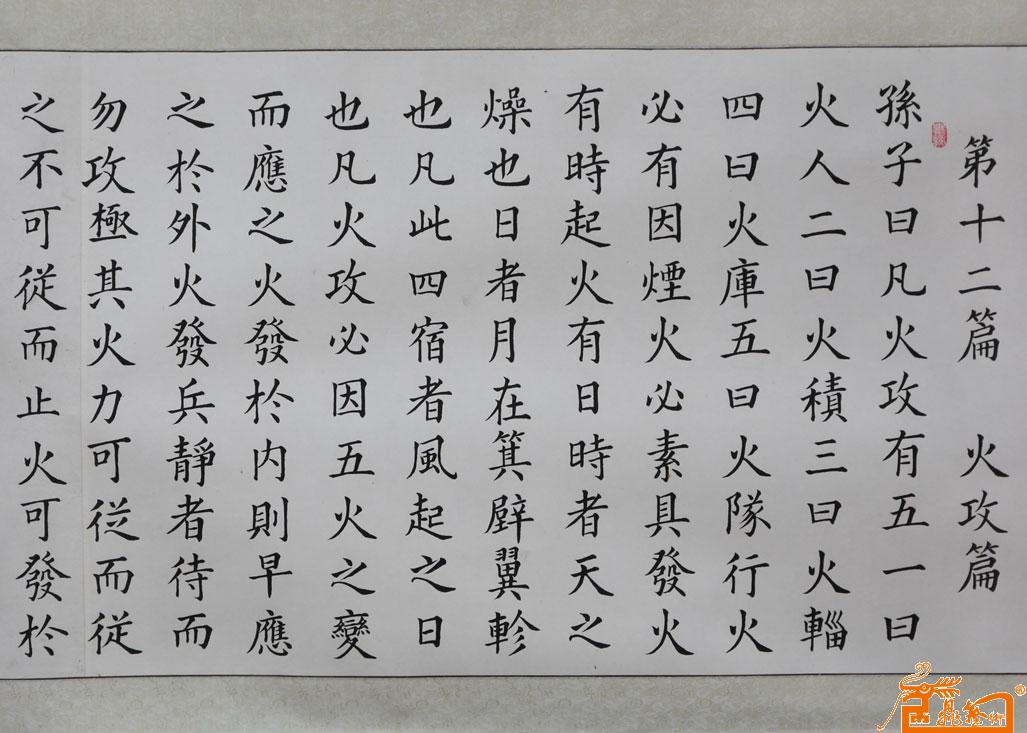 第十二篇 火攻篇
孫子曰凡火攻有五一曰
火人二曰火積三曰火輜
四曰火庫五曰火隊行火
必有因煙火必素具發火
有時起火有日時者天之
燥也日者月在箕壁翼軫
也凡此四宿者風起之日
也凡火攻必因五火之變
而應之火發於内則早應
之於外火發兵靜者待而
勿攻極其火力可從而從
之不可從而止火可發於